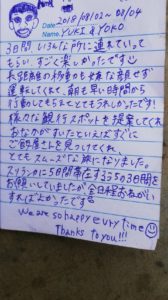 Date 2018/08/02 ~ 08/04
Name. YUKI & YOKO
3日間 いろんな所に連れていって
もらい、すごく楽しかったです
長距離の移動も安全な
運転してくれて、朝も早い時間から
行動してもらえとてもうれしかったです!
様々な観光スポットを提案してくれ
おなかがすいたといえばすぐに
ご飯屋さんを見つけてくれ、
とてもスムーズな旅になりました。
スリランカに5日間滞在するうちの3日間を
お願いしていましたが、全日程お願い
すればよかったです
We are so happy evry time
Thanks to you!!!